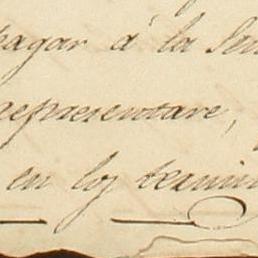 pagar á la
representare,
en los termin